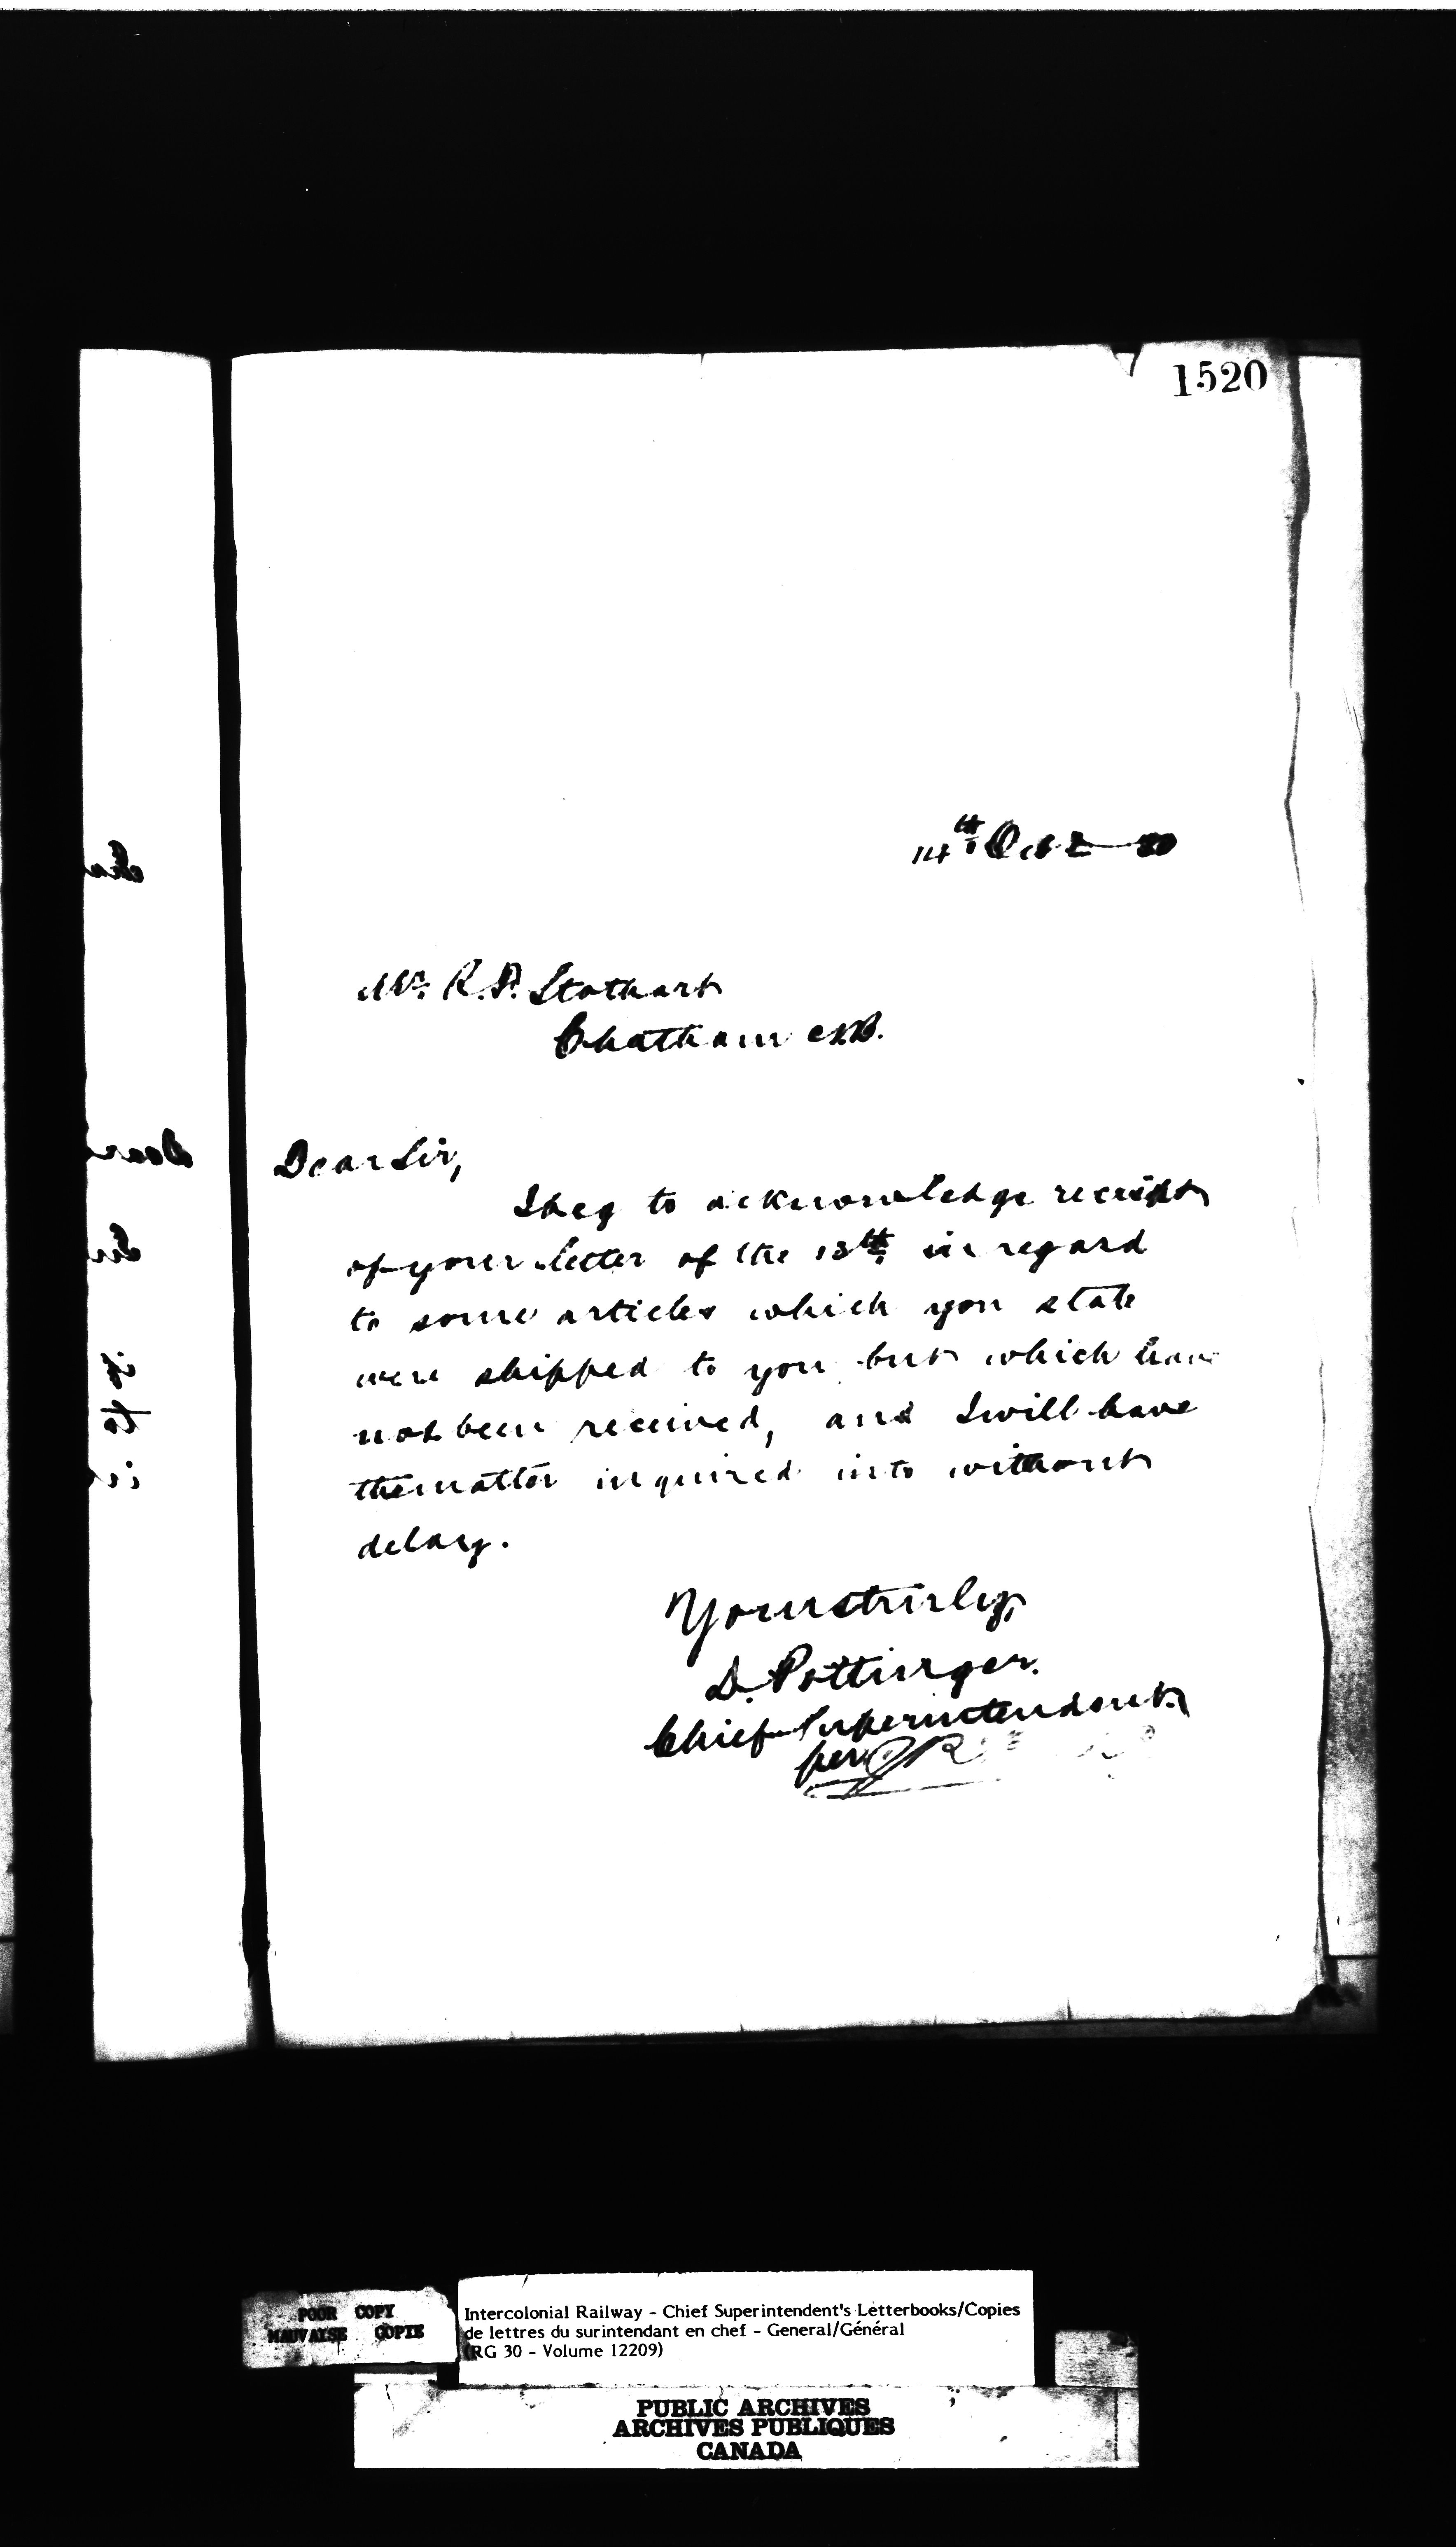 1520
14th Oct 80
Mr. R. P. Stothart
Chatham N.B.
Dear Sir,
I beg to acknowledge receipt
of your letter of the 13th in regard
to some articles which you state
were shipped to you but which have
not been received, and I will have
the matter inquired into without
delay.
Yours truly,
D. Pottinger.
Chief Superintendent
per
POOR COPY
MAUVAISE COPIE
Intercolonial Railway - Chief Superintendent's Letterbooks/Copies
de lettres du surintendant en chef - General/Général
(RG 30 - Volume 12209)
PUBLIC ARCHIVES
ARCHIVES PUBLIQUES
CANADA